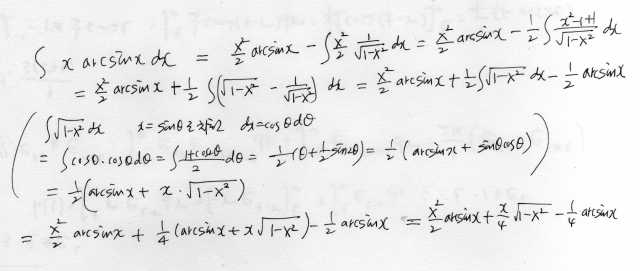 ∫ x arcsinx dx = x²/2 arcsinx − ∫ x²/2 1/√(1-x²) dx = x²/2 arcsinx − 1/2 ∫ (x²-1+1)/√(1-x²) dx
= x²/2 arcsinx + 1/2 ∫ (√(1-x²) − 1/√(1-x²)) dx = x²/2 arcsinx + 1/2 ∫ √(1-x²) dx − 1/2 arcsinx
( ∫ √(1-x²) dx x = sinθ dx = cosθ dθ
= ∫ cosθ · cosθ dθ = ∫ (1+cos2θ)/2 dθ = 1/2 (θ + 1/2 sin2θ) = 1/2 (arcsinx + sinθcosθ)
= 1/2 (arcsinx + x · √(1-x²) ) )
= x²/2 arcsinx + 1/4 (arcsinx + x √(1-x²)) − 1/2 arcsinx = x²/2 arcsinx + x/4 √(1-x²) − 1/4 arcsinx